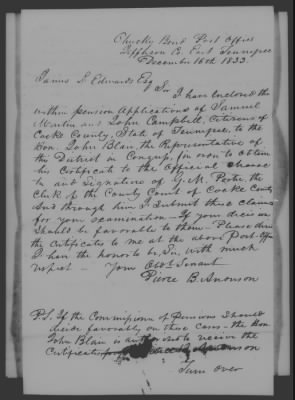 Chucky Bend Post Office
Jefferson Co. East Tennessee
December 16th 1833.
James L Edwards Esq
Sir
I have enclosed the
within pension applications of Samuel
Martin and John Campbell, Citizens of
Cocke County, State of Tennessee, to the
Hon. John Blair, the Representative of
this District in Congress, for him to obtain
his Certificate to the Official Charac
ter and Signature of W. M. Porter, the
Clerk of the County Court of Cocke County
And through him I Submit these claims
for your examination - If your decision
Should be favorable to them - Please
the Certificates to me at the above Post-Office
I have the honor to be, Sir, with much
respect - Your Obdt. Servant
Pierce B. Anderson
P.S. If the Commissioner of Pensions Should
decide favorably on these cases - the Hon
John Blair is authorised to receive the
Certificates
B. Anderson
Turn over